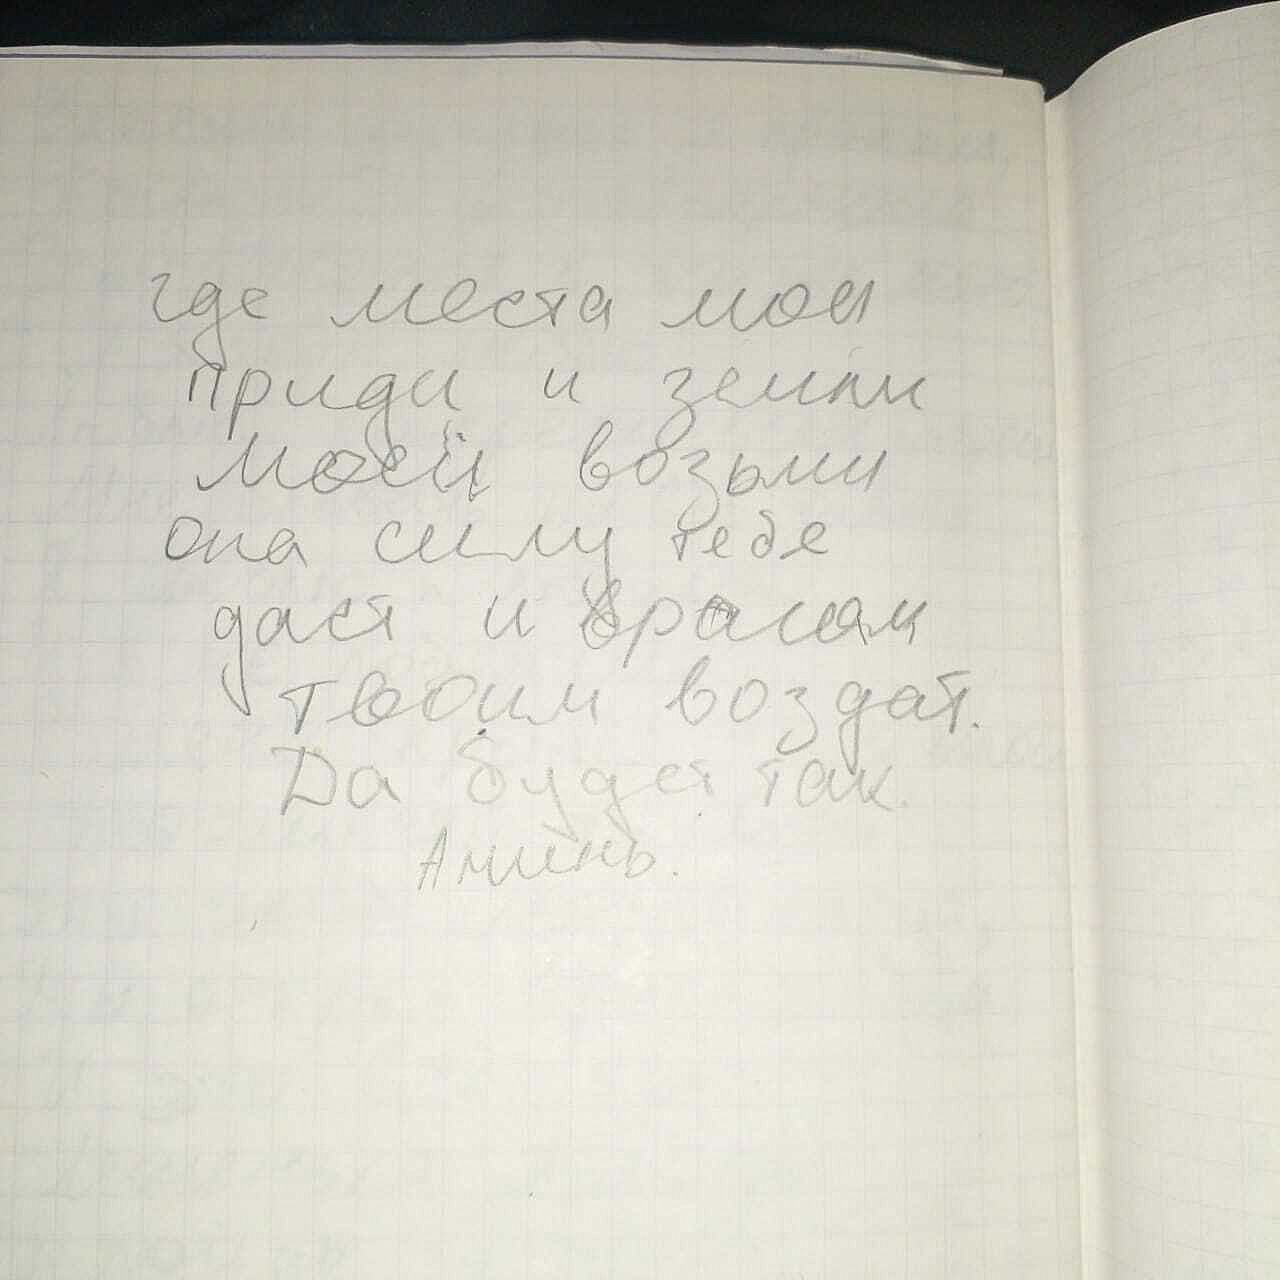 где места мои
приди и земли
моей возьми
она силу тебе
даст и врагам
твоим воздат.
Да будет так.
Аминь.